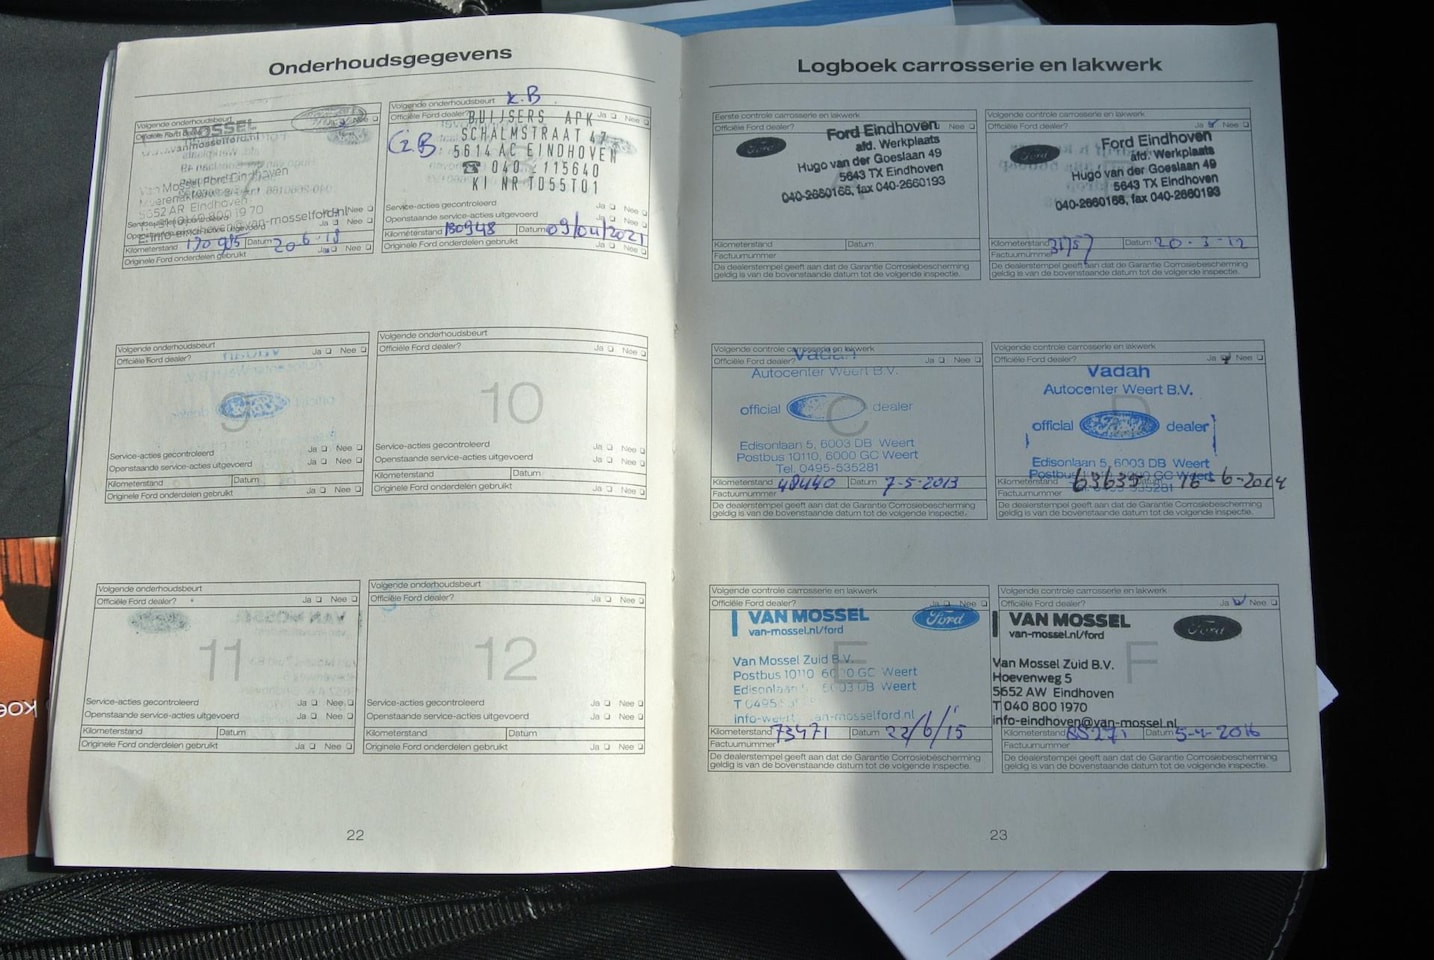 Onderhoudsgegevens
Volgende onderhoudsbeurt
Officiële Ford dealer? Ja Nee
MOSSEL
vanmosselford.nl
Van Mossel Ford Eindhoven
5652 AR Eindhoven
Kilometerstand Datum 20-6-18
Originele Ford onderdelen gebruikt Ja Nee
Volgende onderhoudsbeurt K.B
Officiële Ford dealer? Ja Nee
BUIJSERS APK
SCHALMSTRAAT 47
5614 AC EINDHOVEN
☎ 040 - 2115640
KI NR TD55T01
Service-acties gecontroleerd Ja Nee
Openstaande service-acties uitgevoerd Ja Nee
Kilometerstand 180948 Datum 09/04/2021
Originele Ford onderdelen gebruikt Ja Nee
Volgende onderhoudsbeurt
Officiële Ford dealer? Ja Nee
9
Service-acties gecontroleerd Ja Nee
Openstaande service-acties uitgevoerd Ja Nee
Kilometerstand Datum
Originele Ford onderdelen gebruikt Ja Nee
Volgende onderhoudsbeurt
Officiële Ford dealer? Ja Nee
10
Service-acties gecontroleerd Ja Nee
Openstaande service-acties uitgevoerd Ja Nee
Kilometerstand Datum
Originele Ford onderdelen gebruikt Ja Nee
Volgende onderhoudsbeurt
Officiële Ford dealer? Ja Nee
11
Service-acties gecontroleerd Ja Nee
Openstaande service-acties uitgevoerd Ja Nee
Kilometerstand Datum
Originele Ford onderdelen gebruikt Ja Nee
Volgende onderhoudsbeurt
Officiële Ford dealer? Ja Nee
12
Service-acties gecontroleerd Ja Nee
Openstaande service-acties uitgevoerd Ja Nee
Kilometerstand Datum
Originele Ford onderdelen gebruikt Ja Nee
22
Logboek carrosserie en lakwerk
Eerste controle carrosserie en lakwerk
Officiële Ford dealer? Ja Nee
Ford
Ford Eindhoven
afd. Werkplaats
Hugo van der Goeslaan 49
5643 TX Eindhoven
040-2660166, fax 040-2660193
Kilometerstand Datum
Factuurnummer
De dealerstempel geeft aan dat de Garantie Corrosiebescherming
geldig is van de bovenstaande datum tot de volgende inspectie.
Volgende controle carrosserie en lakwerk
Officiële Ford dealer? Ja Nee
Ford
Ford Eindhoven
afd. Werkplaats
Hugo van der Goeslaan 49
5643 TX Eindhoven
040-2660166, fax 040-2660193
Kilometerstand 31757 Datum 20-3-12
Factuurnummer
De dealerstempel geeft aan dat de Garantie Corrosiebescherming
geldig is van de bovenstaande datum tot de volgende inspectie.
Volgende controle carrosserie en lakwerk
Officiële Ford dealer? Ja Nee
Vadah
Autocenter Weert B.V.
official dealer
C
Edisonlaan 5, 6003 DB Weert
Postbus 10110, 6000 GC Weert
Tel. 0495-535281
Kilometerstand 48440 Datum 7-5-2013
Factuurnummer
De dealerstempel geeft aan dat de Garantie Corrosiebescherming
geldig is van de bovenstaande datum tot de volgende inspectie.
Volgende controle carrosserie en lakwerk
Officiële Ford dealer? Ja Nee
Vadah
Autocenter Weert B.V.
official Ford dealer
D
Edisonlaan 5, 6003 DB Weert
Postbus 10110, 6000 GC Weert
Kilometerstand 63635 Datum 16-6-2014
Factuurnummer
De dealerstempel geeft aan dat de Garantie Corrosiebescherming
geldig is van de bovenstaande datum tot de volgende inspectie.
Volgende controle carrosserie en lakwerk
Officiële Ford dealer? Ja Nee
VAN MOSSEL Ford
van-mossel.nl/ford
E
Van Mossel Zuid B.V.
Postbus 10110 6000 GC Weert
Edisonlaan 5 6003 DB Weert
Kilometerstand 73471 Datum 22/6/15
Factuurnummer
De dealerstempel geeft aan dat de Garantie Corrosiebescherming
geldig is van de bovenstaande datum tot de volgende inspectie.
Volgende controle carrosserie en lakwerk
Officiële Ford dealer? Ja Nee
VAN MOSSEL Ford
van-mossel.nl/ford
F
Van Mossel Zuid B.V.
Hoevenweg 5
5652 AW Eindhoven
T 040 800 1970
info-eindhoven@van-mossel.nl
Kilometerstand 85271 Datum 5-4-2016
Factuurnummer
De dealerstempel geeft aan dat de Garantie Corrosiebescherming
geldig is van de bovenstaande datum tot de volgende inspectie.
23